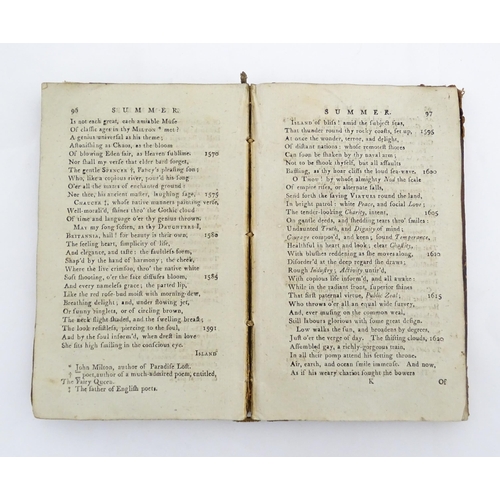 96 SUMMER.
Is not each great, each amiable Muse
Of classic ages in thy MILTON * met?
A genius universal as his theme;
Astonishing as Chaos, as the bloom
Of blowing Eden fair, as Heaven sublime. 1570
Nor shall my verse that elder bard forget,
The gentle SPENSER †, Fancy's pleasing son;
Who, like a copious river, pour'd his song
O'er all the mazes of enchanted ground:
Nor thee, his ancient master, laughing sage, 1575
CHAUCER ‡, whose native manners painting verse,
Well-moraliz'd, shines thro' the Gothic cloud
Of time and language o'er thy genius thrown.
MAY my song soften, as thy DAUGHTERS I,
BRITANNIA, hail! for beauty is their own, 1580
The feeling heart, simplicity of life,
And elegance, and taste: the faultless form,
Shap'd by the hand of harmony; the cheek,
Where the live crimson, thro' the native white
Soft shooting, o'er the face diffuses bloom, 1585
And every nameless grace; the parted lip,
Like the red rose-bud moist with morning-dew,
Breathing delight; and, under flowing jet,
Or sunny ringlets, or of circling brown,
The neck slight shaded, and the swelling breast;
The look resistless, piercing to the soul, 1591
And by the soul inform'd, when drest in love
She sits high smiling in the conscious eye.
ISLAND
* John Milton, author of Paradise Lost.
† poet, author of a much-admired poem, entitled,
The Fairy Queen.
‡ The father of English poets.
SUMMER. 97
ISLAND of bliss! amid the subject seas,
That thunder round thy rocky coasts, set up, 1595
At once the wonder, terror, and delight,
Of distant nations: whose remotest shores
Can soon be shaken by thy naval arm;
Not to be shook thyself, but all assaults
Baffling, as thy hoar cliffs the loud sea-wave. 1600
O THOU! by whose almighty Nod the scale
Of empire rises, or alternate falls,
Send forth the saving VIRTUES round the land,
In bright patrol: white Peace, and social Love;
The tender-looking Charity, intent, 1605
On gentle deeds, and shedding tears thro' smiles:
Undaunted Truth, and Dignity of mind;
Courage compos'd, and keen; sound Temperance,
Healthful in heart and look; clear Chastity,
With blushes reddening as she moves along, 1610
Disorder'd at the deep regard she draws;
Rough Industry; Activity untir'd,
With copious life inform'd, and all awake:
While in the radiant front, superior shines
That first paternal virtue, Public Zeal; 1615
Who throws o'er all an equal wide survey,
And, ever musing on the common weal,
Still labours glorious with some great design.
LOW walks the sun, and broadens by degrees,
Just o'er the verge of day. The shifting clouds, 1620
Assembled gay, a richly-gorgeous train,
In all their pomp attend his setting throne.
Air, earth, and ocean smile immense. And now,
As if his weary chariot sought the bowers
K Of